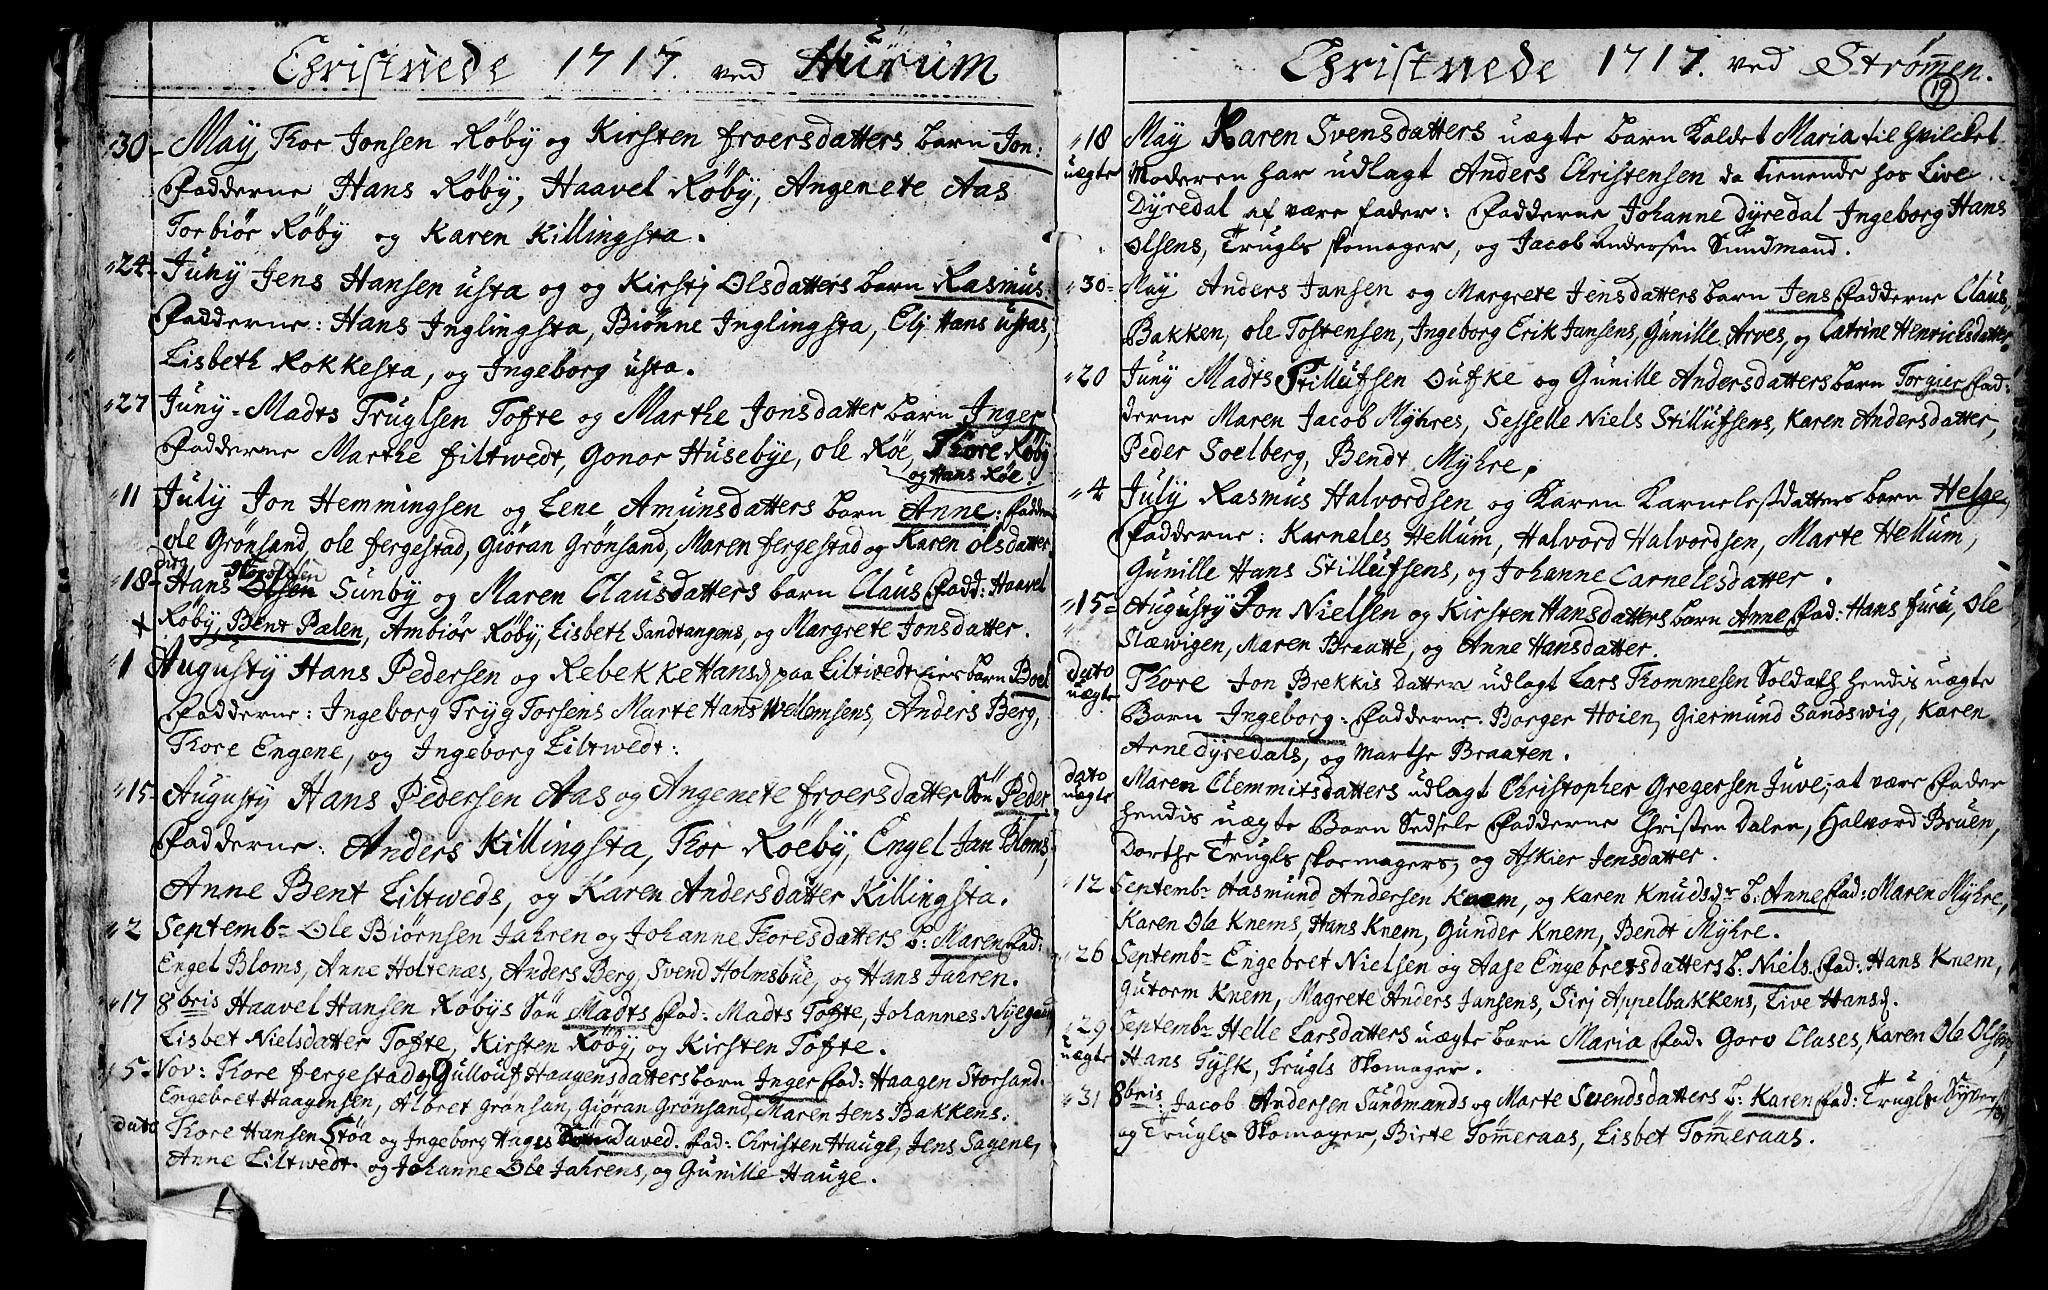 Christnede 1717. ved Hürum
30 - May Thor Jonsen Röby og Kirsten froersdatters barn Jon:
Fadderne Hans Röby, Haavel Röby, Angenete Aas
Torbiör Röby og Karen Killingsta.
24 - Juny Jens Hansen usta og og Kirstj Olsdatters barn Rasmus.
Fadderne: Hans Inglingsta, Biönne Inglingsta, Elj Hans ustas,
Lisbeth Rokkesta, og Ingeborg usta.
27 Juny - Madts Truglsen Tofte og Marthe Jonsdatter barn Inger
Fadderne Marthe filtwedt, Gonor Husebÿe, ole Röe, Thore Röby
og Hans Röe.
11 July Jon Hemmingsen og Lene Amunsdatters barn Anne: Fadder
ole Grönsand, ole fergestad, Giöran Grönsand, Maren fergestad og Karen olsdatter
18 - dito Hans Olsen Sunby og Maren Clausdatters barn Claus Fadd: Haavel
Röby, Bent Pælen, Ambiör Röby, Lisbeth Sandtangens, og Margrete Jonsdatter.
1 Augusty Hans Pedersen og Rebekke Hansd paa Liltwedt eier barn Boel
Fadderne: Ingeborg Tryg Torsens Marte Hans Wellemsens, Anders Berg,
Thore Engene, og Ingeborg Liltwedt:
15 - Augusty Hans Pedersen Aas og Angenete froersdatter Sön Peder
Fadderne: Anders Killingsta, Thor Röeby, Engel Jan Bloms,
Anne Bent Liltweds, og Karen Andersdatter Killingsta.
2 Septemb- Ole Biörnsen Jahren og Johanne Thoresdatters b: Maren Fad:
Engel Bloms, Anne Holtenæs, Anders Berg, Svend Holmsbue, og Hans Jahren.
17 8bris Haavel Hansen Röbys Sön Madts Fad: Madts Tofte, Johannes Nyegaard
Lisbet Nielsdatter Tofte, Kirsten Röby, og Kirsten Tofte.
5 - Nov: Thore fergestad og Gullouf Haagensdatters barn Inger Fad: Haagen Storsand.
Engebret Haagensen, Albret Grönsan, Giöran Grönsand, Maren Jens Bakkens.
dato Thore Hansen Stöa og Ingeborg Hages Daved. Fad: Christen Haugl, Jens Sagene,
Anne Liltwedt. og Johanne Ole Jahrens, og Gunille Hauge.
Christnede 1717. ved Strömen.
19
18 May Karen Svensdatters uægte barn kaldet Maria til hvilcket
uægte Moderen har udlagt Anders Christensen da tienende hos Live
Dyredal af være fader: Fadderne Johanne Dyredal Ingeborg Hans
Olsens, Trugls skomager, og Jacob Andersen Sundmand.
30 - May Anders Jansen og Margrete Jensdatters barn Jens Fadderne Claus
Bakken, ole Tostensen, Ingeborg Erik Jansens, Gunille Arves, og Catrine Henricksdatter.
20 Juny Madts Stillufsen Oufke og Gunille Andersdatters barn Torgier Fad:
derne Maren Jacob Myhres, Sesselle Niels Stillufsens, Karen Andersdatter,
Peder Soelberg, Bendt Myhre.
4 July Rasmus Halvordsen og Karen Karnelesdatters barn Helge,
Fadderne: Karneles Hellum, Halvord Halvordsen, Marte Hellum,
Gunille Hans Stillufsens, og Johanne Carnelesdatter.
15 - Augusty Jon Nielsen og Kirsten Hansdatters barn Anne Fad: Hans furu, Ole
Slæwigen, Maren Braatte, og Anne Hansdatter.
dato Thore Jon Brekkis datter udlagt Lars Thommesen Soldath hendis uægte
uægte Barn Ingeborg - Fadderne: Borger Hoien, Giermund Sandswig, Karen
Arne dyredals, og Marthe Braaten.
dato Maren Clemmitsdatters udlagt Christopher Gregersen Juve, at være Fader
uægte hendis uægte Barn Sedsele Fadderne Christen Dalen, Halvord Bruen,
Dorthe Trugls skoemagers, og Askier Jensdatter.
12 Septemb- Aasmund Andersen Knem, og Karen Knudsdr b: Anne Fad: Maren Myhre,
Karen Ole Knems, Hans Knem, Gunder Knem, Bendt Myhre.
26 Septemb- Engebret Nielsen og Aase Engebretsdatters b: Niels. Fad: Hans Knem,
Gutorm Knem, Magrete Anders Jansens, Sirj Appelbakkens, Live Hansd.
29 Septembr Helle Larsdatters uægte barn Maria Fad: Goro Clases, Karen Ole Olsens
uægte Hans Tysk, Trugls Skomager.
31 8bris: Jacob Andersen Sundmands og Marte Svendsdatters b: Karen Fad: Trugls
og Trugls Skomager, Birte Tömeraas, Lisbet Tömeraas.